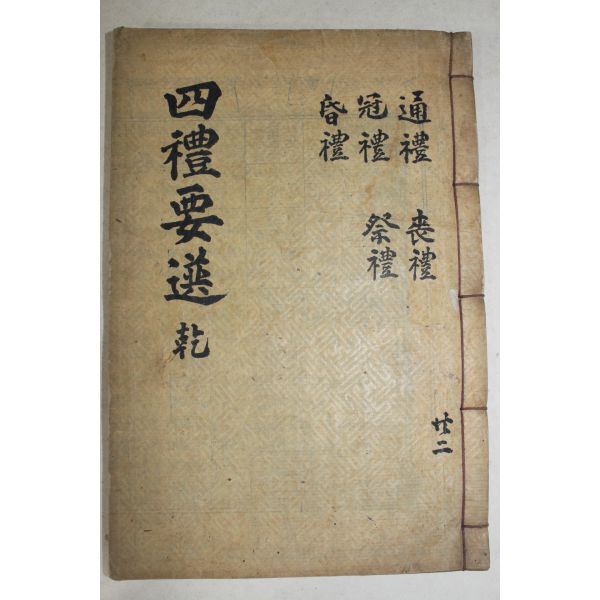 共二
通禮 喪禮
冠禮 祭禮
昏禮
四禮要選 乾